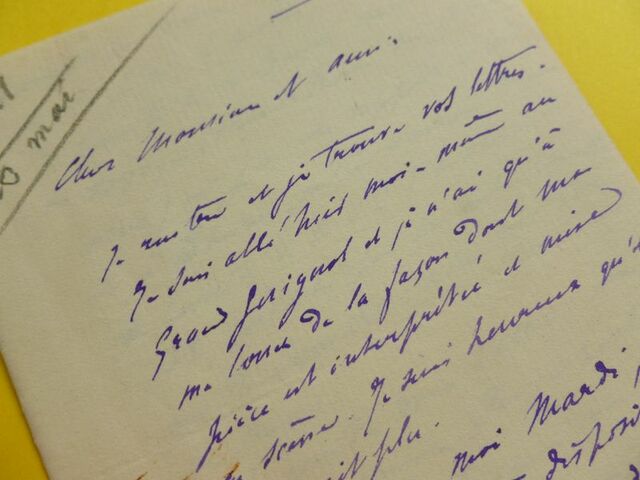 0 mai
Cher Monsieur et ami.
Je rentre et je trouve vos lettres.
Je suis allé hier moi-même au
Grand Guignol et je n'ai qu'à
me louer de la façon dont ma
pièce est interprétée et mise
en scène. Je suis heureux qu'
ait plu.
moi Mardi,